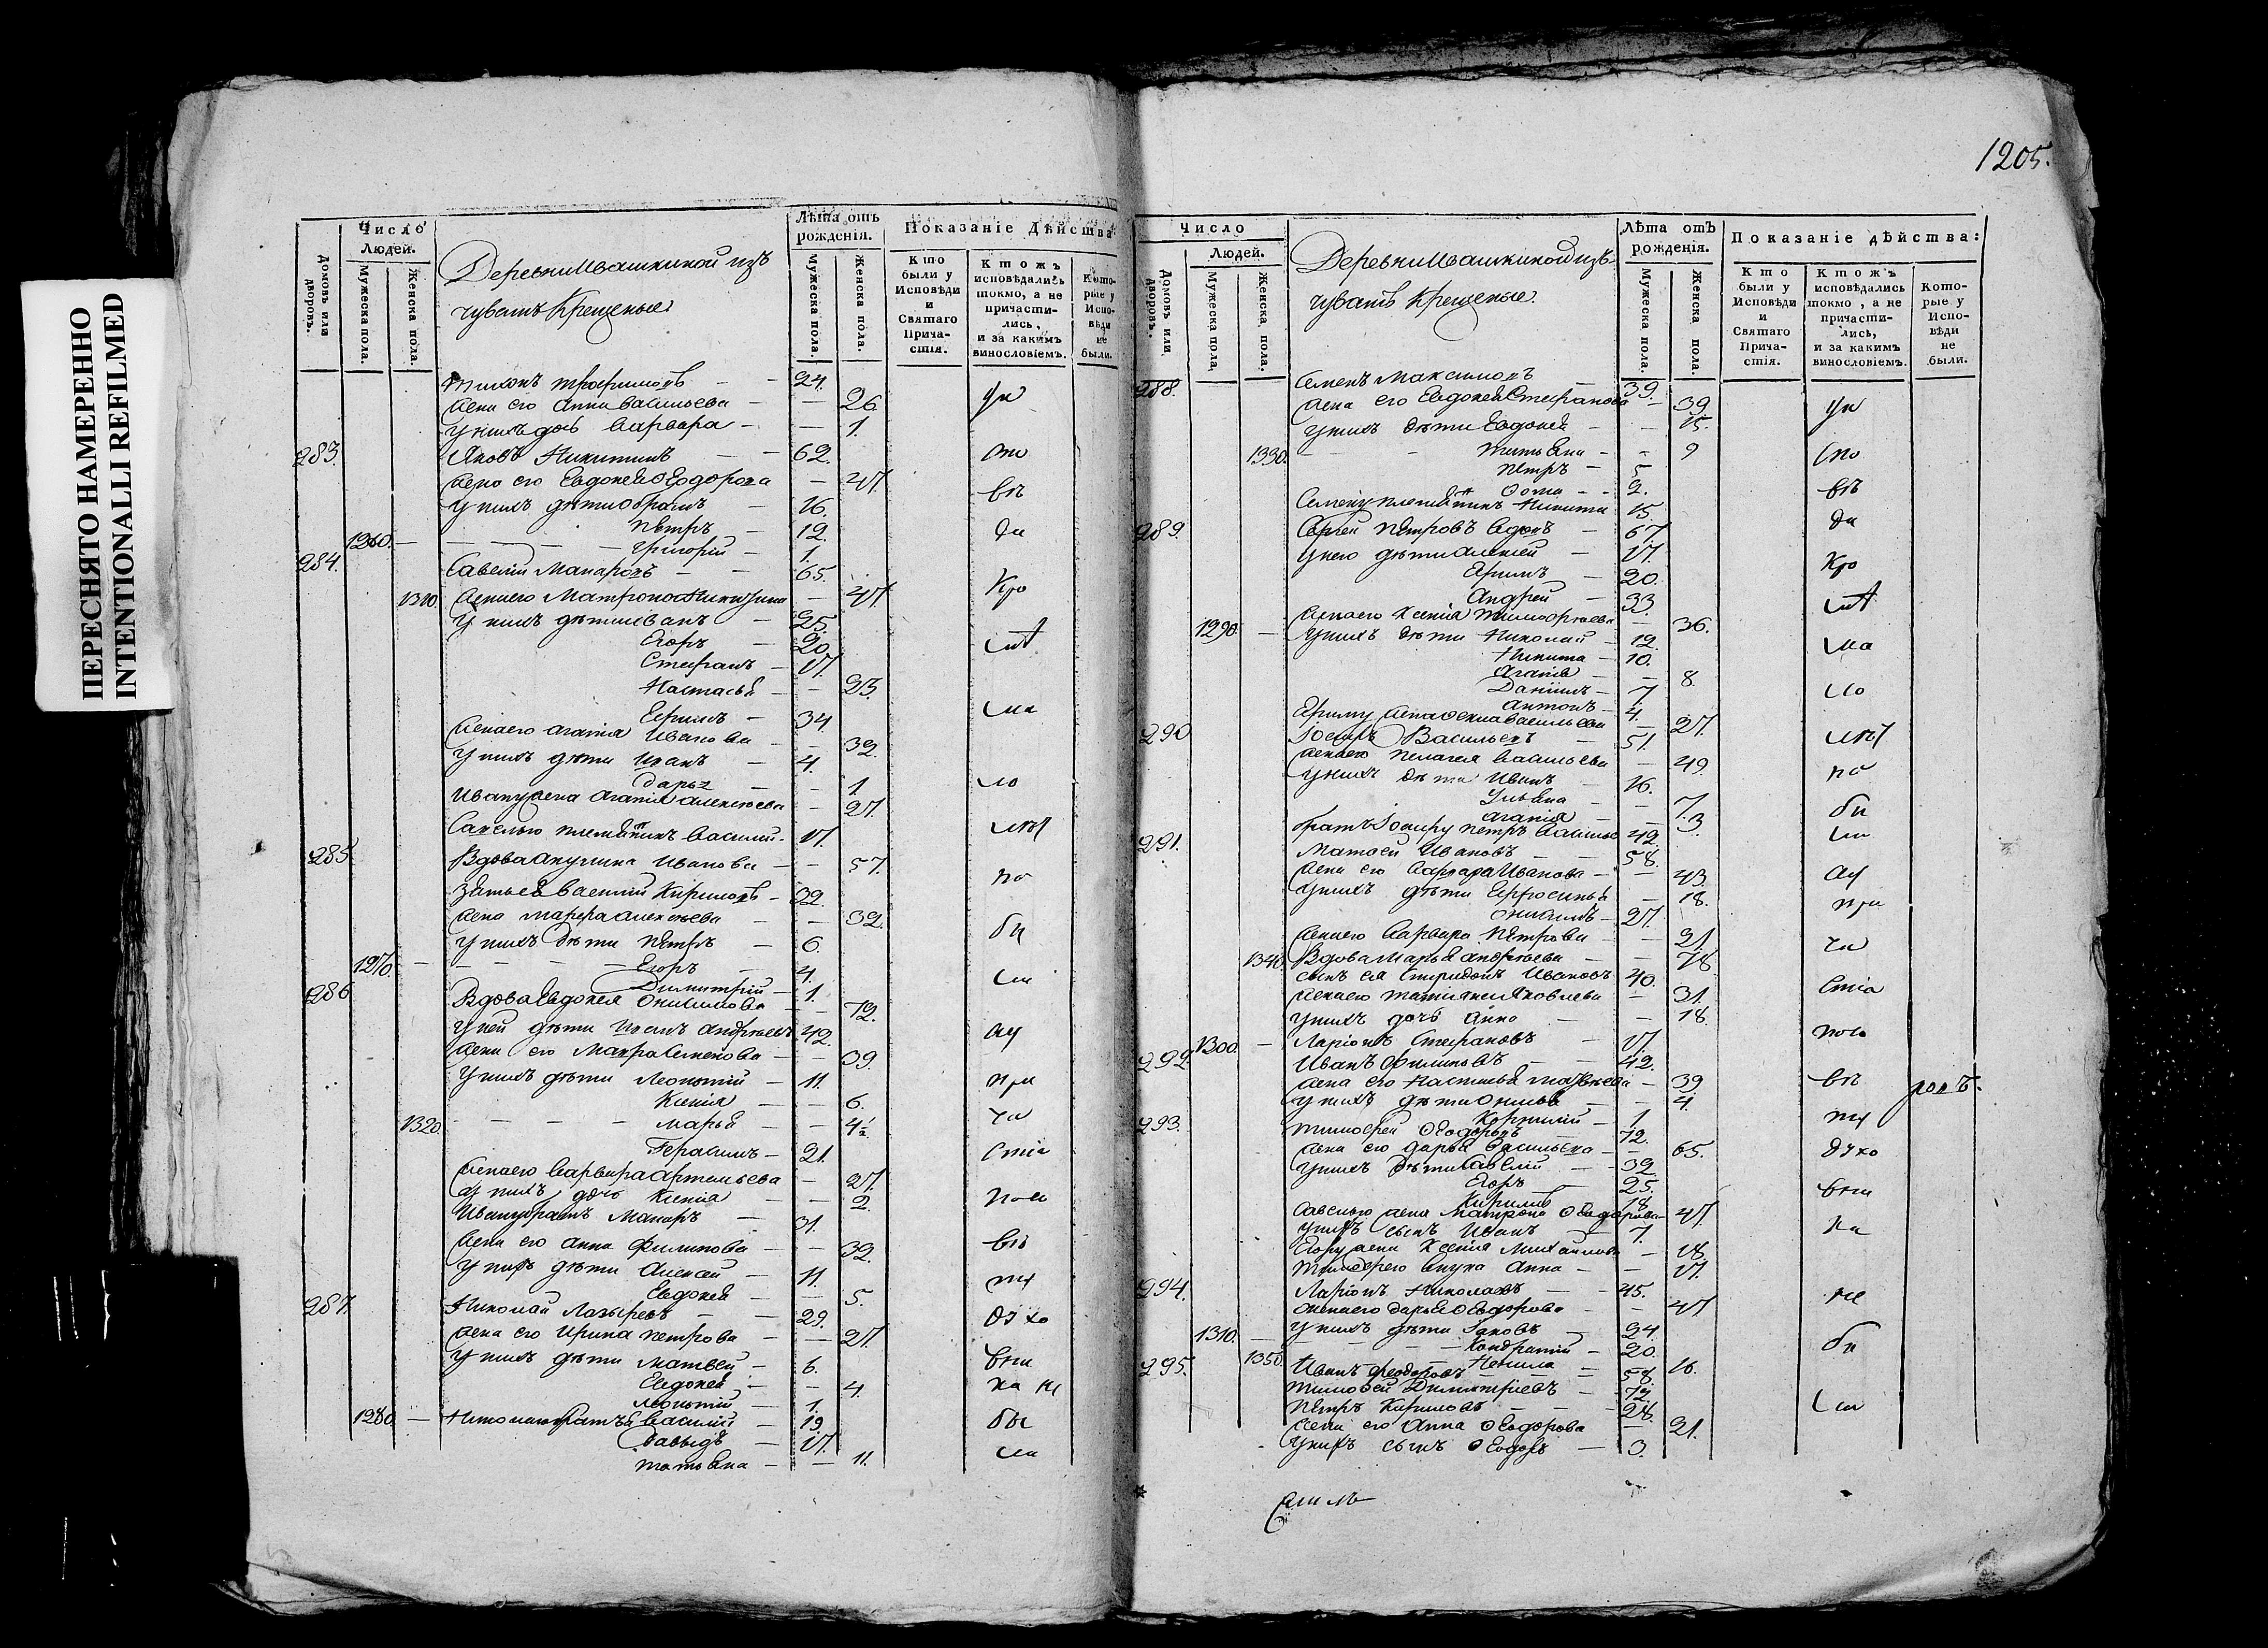 ПЕРЕСНЯТО НАМЕРЕННО
INTENTIONALLI REFILMED
Число
Людей.
Домовъ или дворовъ.
Мужеска пола.
Женска пола.
Деревни Ивашкиной изъ
чувашъ Крещеные.
Лѣта отъ рожденія.
Мужеска пола.
Женска пола.
Показаніе Дѣйства:
Кто были у Исповѣди и Святаго Прича-стія.
Ктожъ исповѣдались токмо, а не причасти-лись, и за какимъ винословіемъ.
Кото-рые у Испо-вѣди не были.
Тихонъ Трофимовъ — 24.
жена его Анна Васильева — 26
у нихъ дочь Варвара — 1.
283. Яковъ Никитинъ — 62.
жена его Евдокея Ѳеодорова — 47.
у нихъ дѣти — 16.
Петръ — 12.
1260. Григорій — 1.
284. Савелій Макаровъ — 65.
1310. жена его Матрона — 47.
у нихъ дѣти Иванъ — 25.
Егоръ — 20.
Стефанъ — 17.
Настасья — 23.
Ефимъ — 34
жена его Агафія Иванова — 32.
у нихъ дѣти Иванъ — 4.
Дарья — 1.
Ивану жена Агафія Алексѣева — 27.
Савелью племянникъ Василий — 17.
285. Вдова Акулина Иванова — 57.
зять ея Василий Кириловъ — 32.
жена Марфа Алексѣева — 32.
у нихъ дѣти Петръ — 6
1270. Егоръ — 4.
Димитрій — 1.
286 Вдова Евдокея Онисимова — 72.
у ней дѣти Иванъ Андреевъ 42.
жена его Макра Семенова — 39.
у нихъ дѣти Леонтій — 11.
Ксенія — 6.
1320. Марья — 4½
Герасимъ — 21.
жена его Варвара — 27.
у нихъ дочь Ксенія — 2.
Ивану братъ Макаръ — 31.
жена его Анна Филипова — 32.
у нихъ дѣти Алексей — 11.
Евдокея — 5.
287. Николай Лазыревъ — 29.
жена его Ирина Петрова — 27.
у нихъ дѣти Матвей — 6.
Евдокея — 4.
Леонтій — 1.
1280 — Николаю братья Василий — 19.
Давыдъ — 17.
Татьяна — 11.
1205.
Число
Людей.
Домовъ или дворовъ.
Мужеска пола.
Женска пола.
Деревни Ивашкиной изъ
чувашъ Крещеные.
Лѣта отъ рожденія.
Мужеска пола.
Женска пола.
Показаніе дѣйства:
Кто были у Исповѣди и Святаго Прича-стія.
Ктожъ исповѣдались токмо, а не причасти-лись, и за какимъ винословіемъ.
Кото-рые у Испо-вѣди не были.
288. Семенъ Максимовъ — 39.
жена его Евдокея Стефанова — 39
у нихъ дѣти Евдокея — 15.
1330. Татьяна — 9
Петръ — 5
Ѳома — 2.
Семену племянникъ Никита 15.
289. Сергей Петровъ вдовъ — 67.
у него дѣти Алексей — 17.
Ефимъ — 20.
Андрей — 33.
жена его Ксенія Тимоѳеева — 36.
1290 — у нихъ дѣти Николай — 12.
Никита — 10.
Агафія — 8.
Даніилъ — 7.
Антонъ — 4.
Ефиму жена Васильева — 27.
290 Іосифъ Васильевъ — 51.
жена его Пелагея Васильева — 49.
у нихъ дѣти Иванъ — 16.
Ульяна — 7.
Агафія — 3.
братъ Іосифу Петръ Васильевъ 42.
291. Матѳей Ивановъ — 58.
жена его Варвара Иванова — 43.
у нихъ дѣти Ефросинья — 18.
Онисимъ — 27.
жена его Варвара Петрова — 21.
1340. Вдова Марья Андреева — 78.
сынъ ея Спиридонъ Ивановъ 40.
жена его Татьяна Яковлева — 31.
у нихъ дочь Анна — 18.
1300. — Ларіонъ Стефановъ — 17.
292. Иванъ Филиповъ — 42.
жена его Настасья — 39
у нихъ дѣти — 4.
Корнилій — 1.
293. Тимоѳей Ѳеодоровъ 72.
жена его Дарья Васильева — 65.
у нихъ дѣти Савелій — 32.
Егоръ — 25.
Кирилъ 18.
Савелью жена Матрона Ѳеодорова — 47.
у нихъ сынъ Иванъ — 7.
Егору жена Ксенія Михайлова — 18.
Тимоѳею внука Анна — 17.
294. Ларіонъ Николаевъ — 45.
жена его Дарья Ѳеодорова — 47.
1310. — у нихъ дѣти Іаковъ — 24.
Кондратій — 20.
1350. Ненила — 16.
295. Иванъ Ѳеодоровъ — 58.
Тимоѳей Димитріевъ — 72.
Петръ Кириловъ — 28.
жена его Анна Ѳеодорова — 21.
у нихъ сынъ Ѳеодоръ — 3.